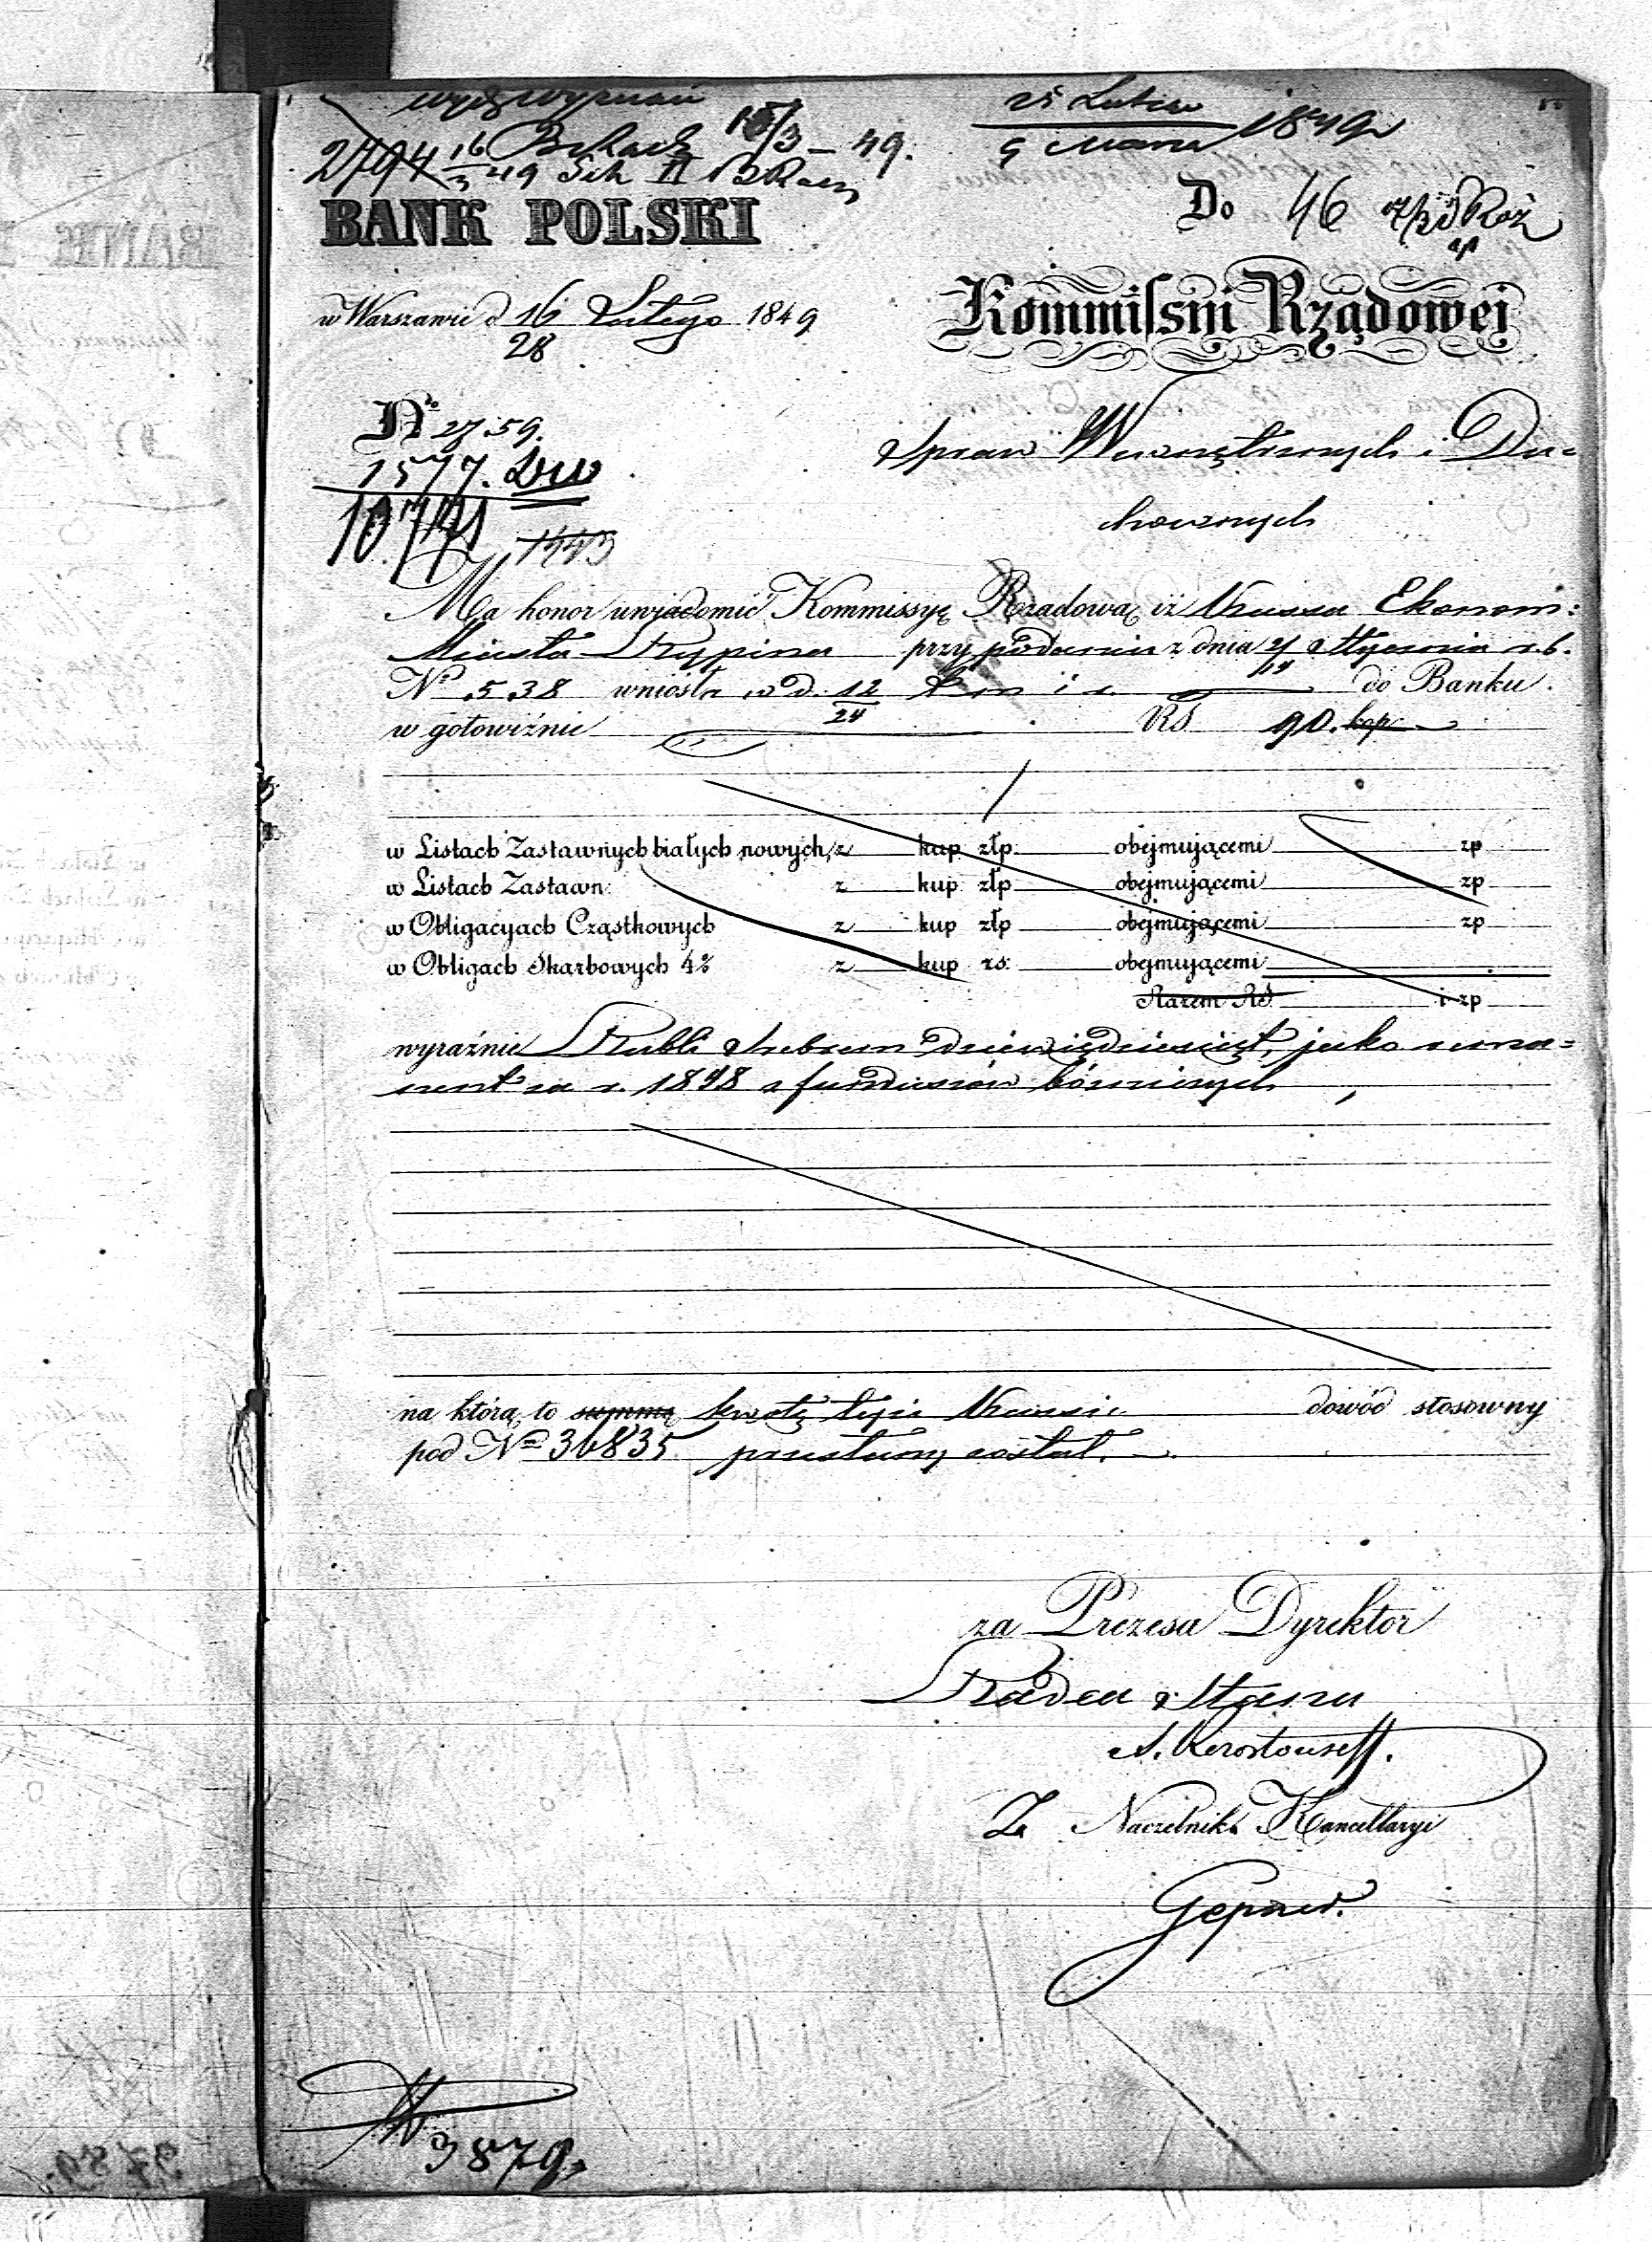 25 Lutego
9 Marca 1849
15/3 – 49.
2794 16/3 49 Sek II
BANK POLSKI
Do 46
w Warszawie d 16/28 Lutego 1849
Kommissyi Rządowej
No 2759.
Spraw Wewnętrznych i Du=
1577.
chownych
10
1443
Ma honor uwiadomić Kommissyę Rządową iż Kassa Ekonom:
Miasta Rypina przy podaniu z dnia Stycznia r. b.
No 538 wniosła w d. 12/24 t. m. i r. do Banku
w gotowiźnie RS 90. kop
w Listach Zastawnych białych nowych z kup złp obejmującemi zp
w Listach Zastawn: z kup złp obejmującemi zp
w Obligacyach Cząstkowych z kup złp obejmującemi zp
w Obligach Skarbowych 4% z kup rs: obejmującemi
Razem RS i zp
wyraźnie Rubli Srebrem dziewięćdziesiąt, jako rema=
nent za r. 1848 z funduszów bóżniczych,
na którą to summę kwotę tejże Kassie dowód stosowny
pod No 36835 przesłany został.
za Prezesa Dyrektor
Radca Stanu
Za Naczelnika Kancellaryi
3879.